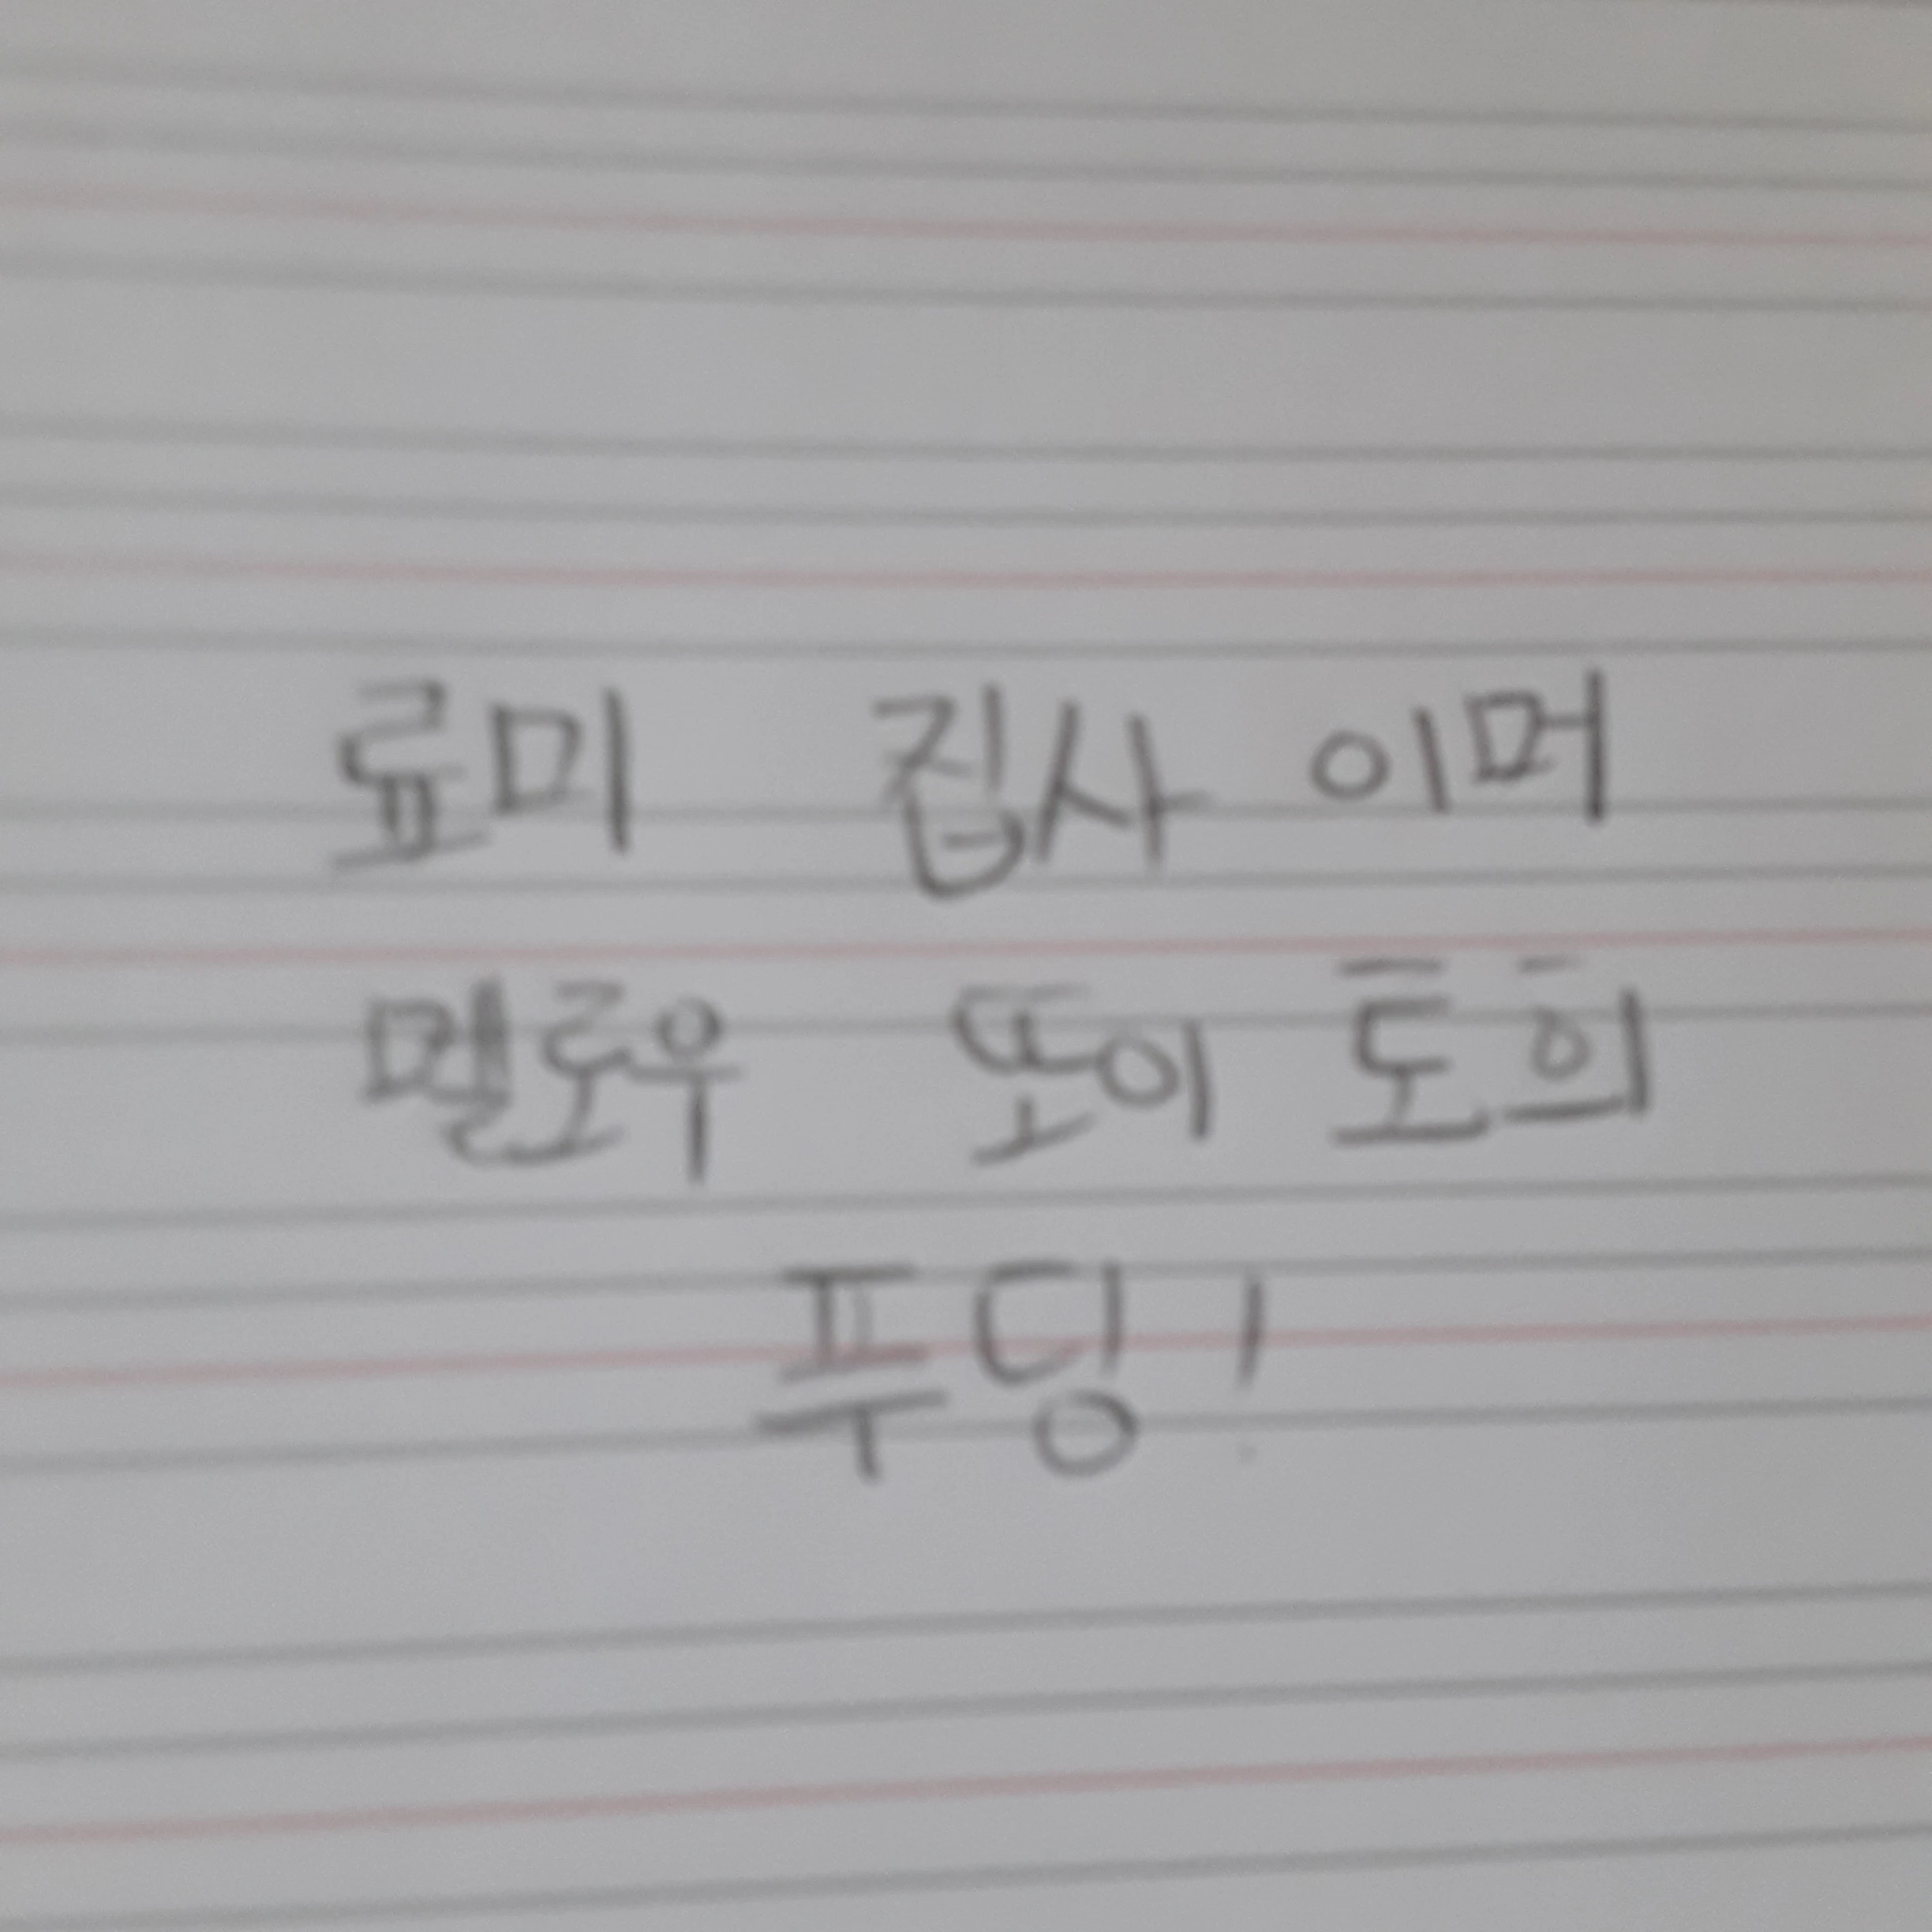 료미 집사 이머
멜로우 또이 토희
푸딩!